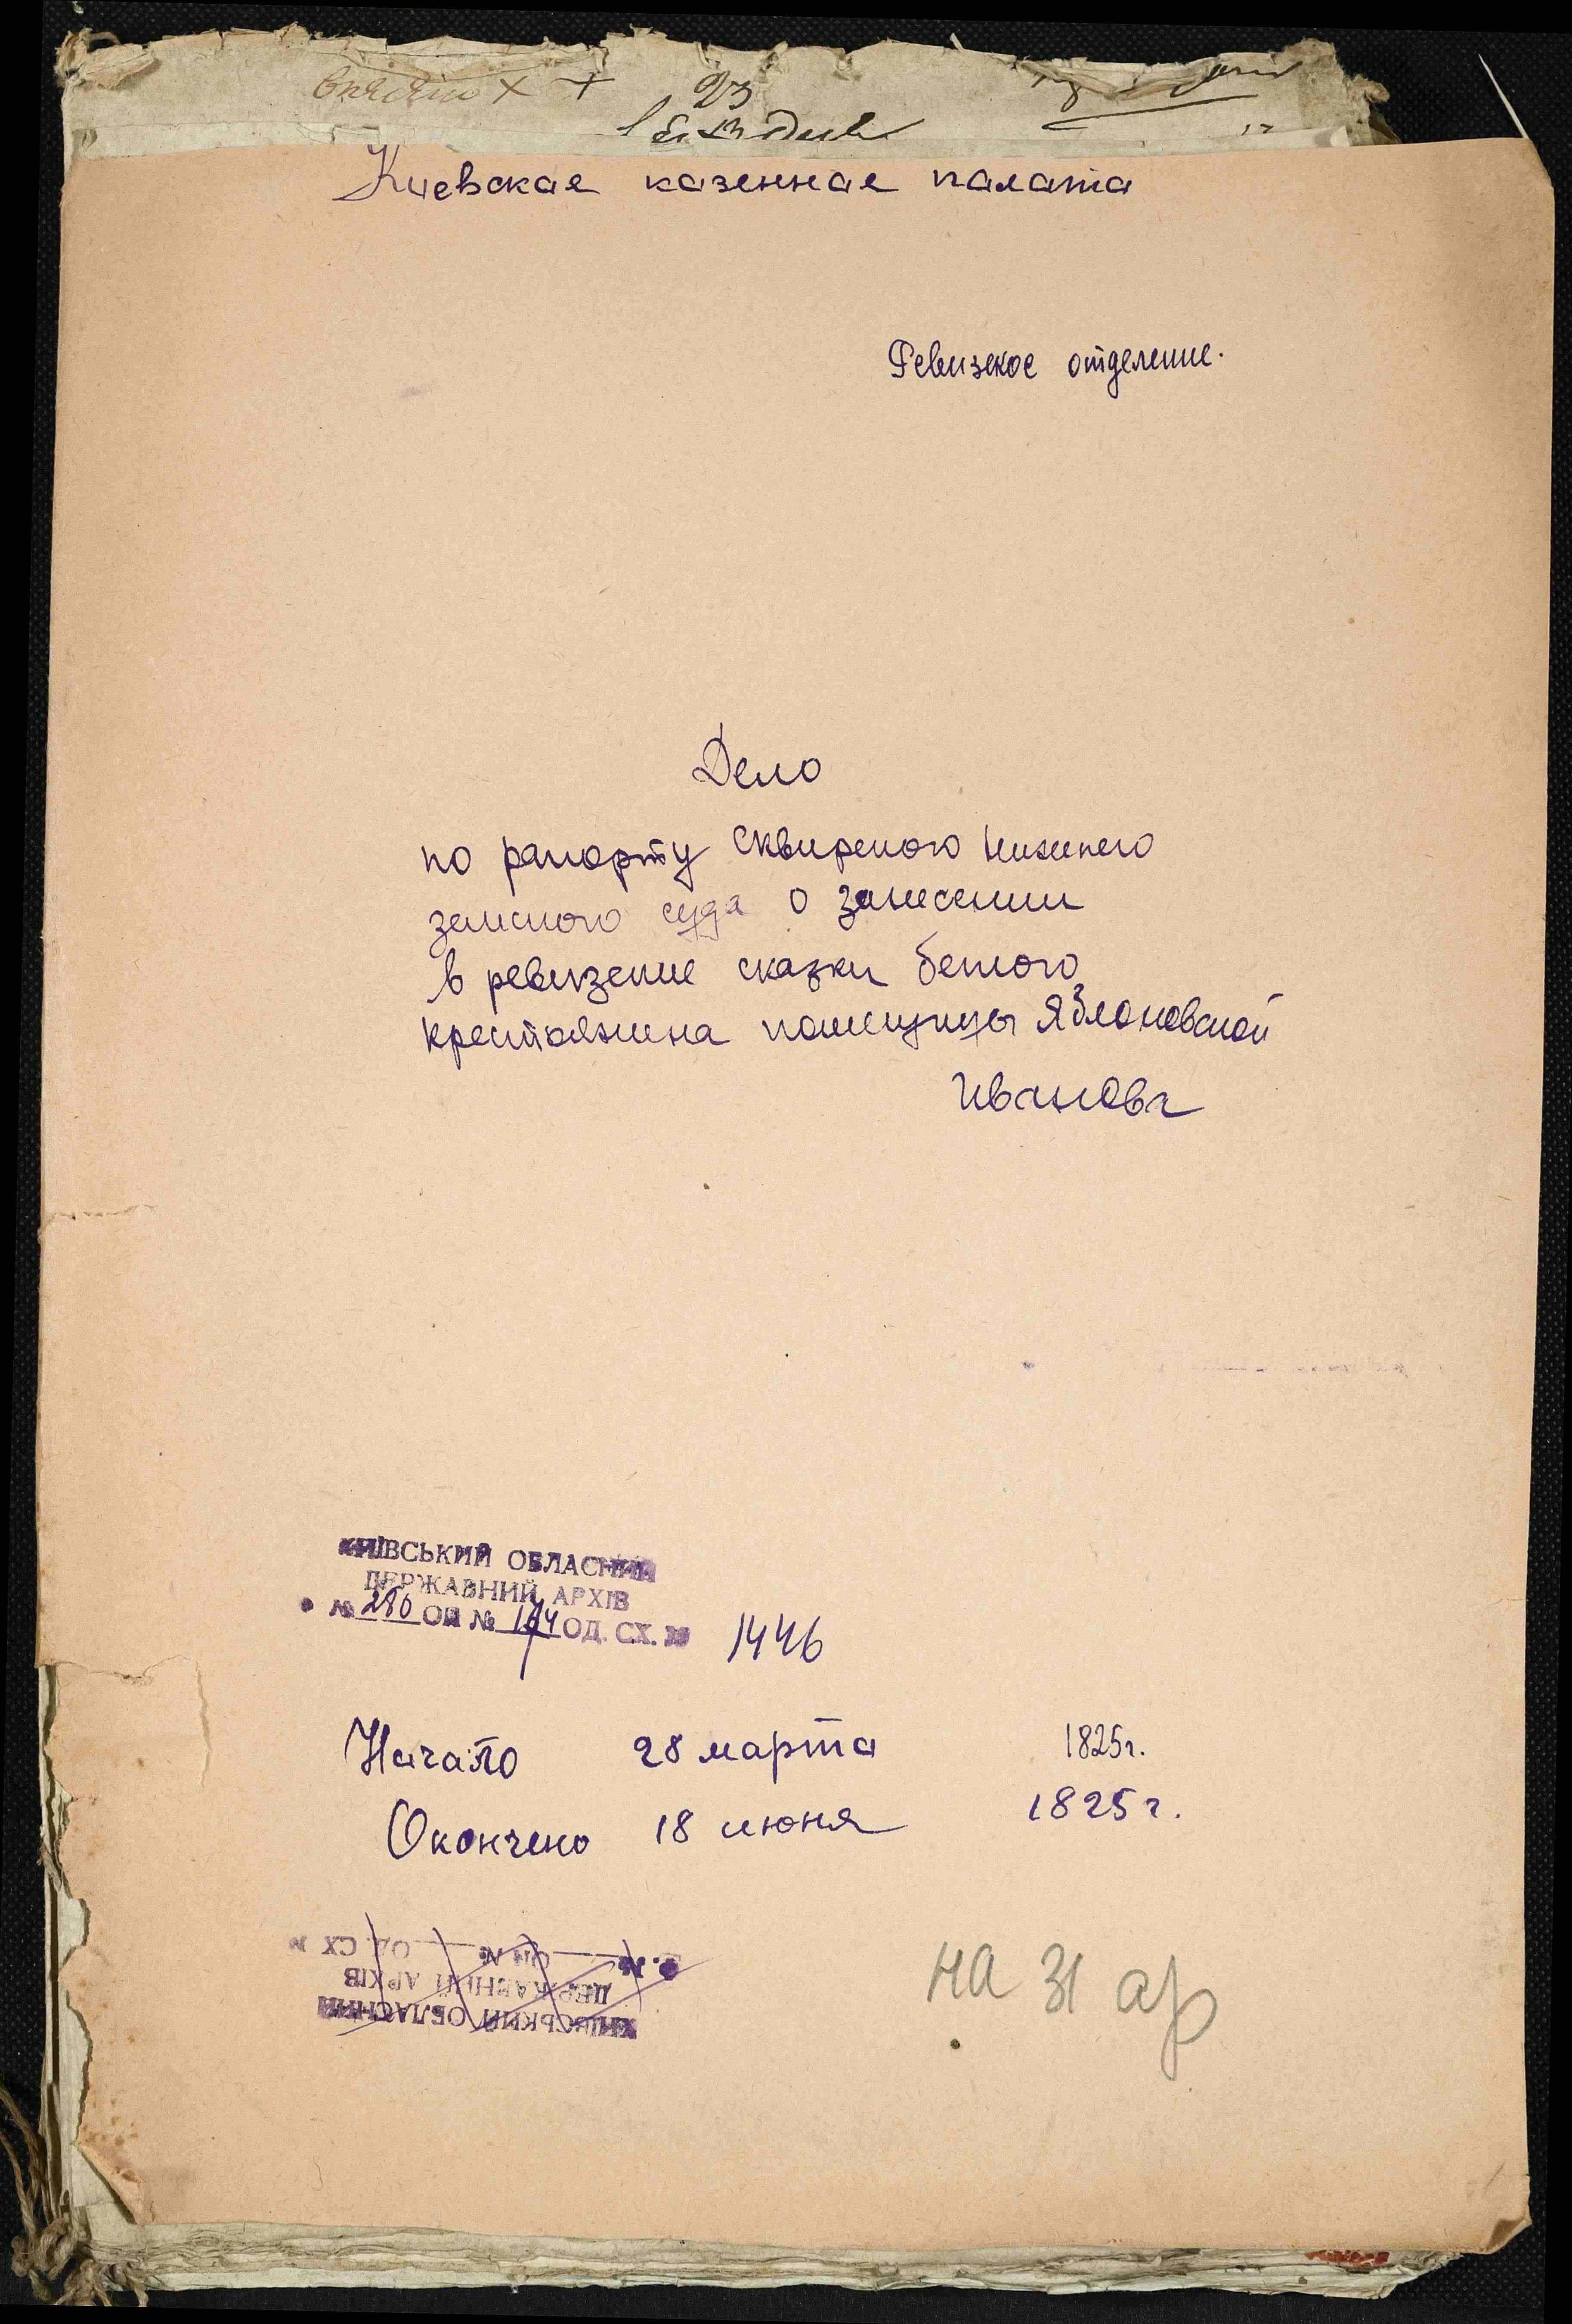 23
Киевская казенная палата
Ревизское отделение.
Дело
по рапорту Сквирского нижнего
земского суда о занесении
в ревизские сказки беглого
крестьянина помещицы Яблоновской
Иванова
КИЇВСЬКИЙ ОБЛАСНИЙ
ДЕРЖАВНИЙ АРХІВ
№ 280 ОП № 174 ОД. СХ. № 1446
Начато 28 марта 1825г.
Окончено 18 июня 1825г.
Ф. № ОП № ОД. СХ №
ДЕРЖАВНИЙ АРХІВ
КИЇВСЬКИЙ ОБЛАСНИЙ
на 31 ар